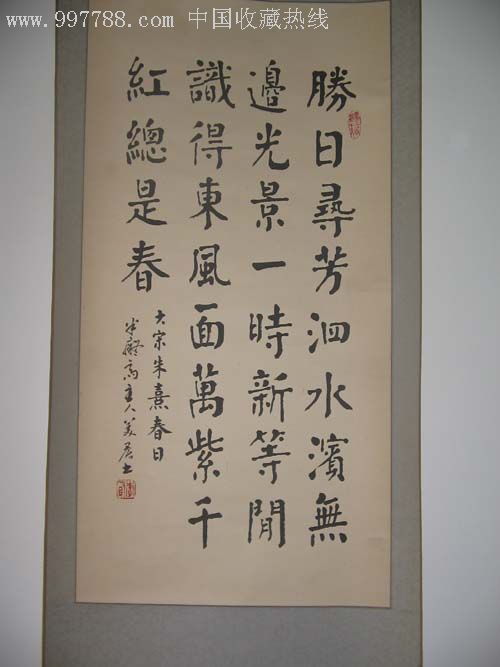 www.997788.com 中国收藏热线
勝日尋芳泗水濱無
邊光景一時新等閒
識得東風面萬紫千
紅總是春
大宗朱熹春日
主人美居士